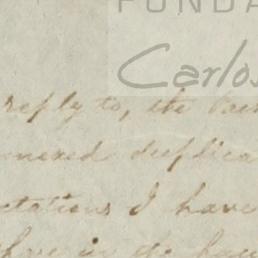 FUNDA
Carlos
reply to, the
nnexed duplica
tations I have
in the